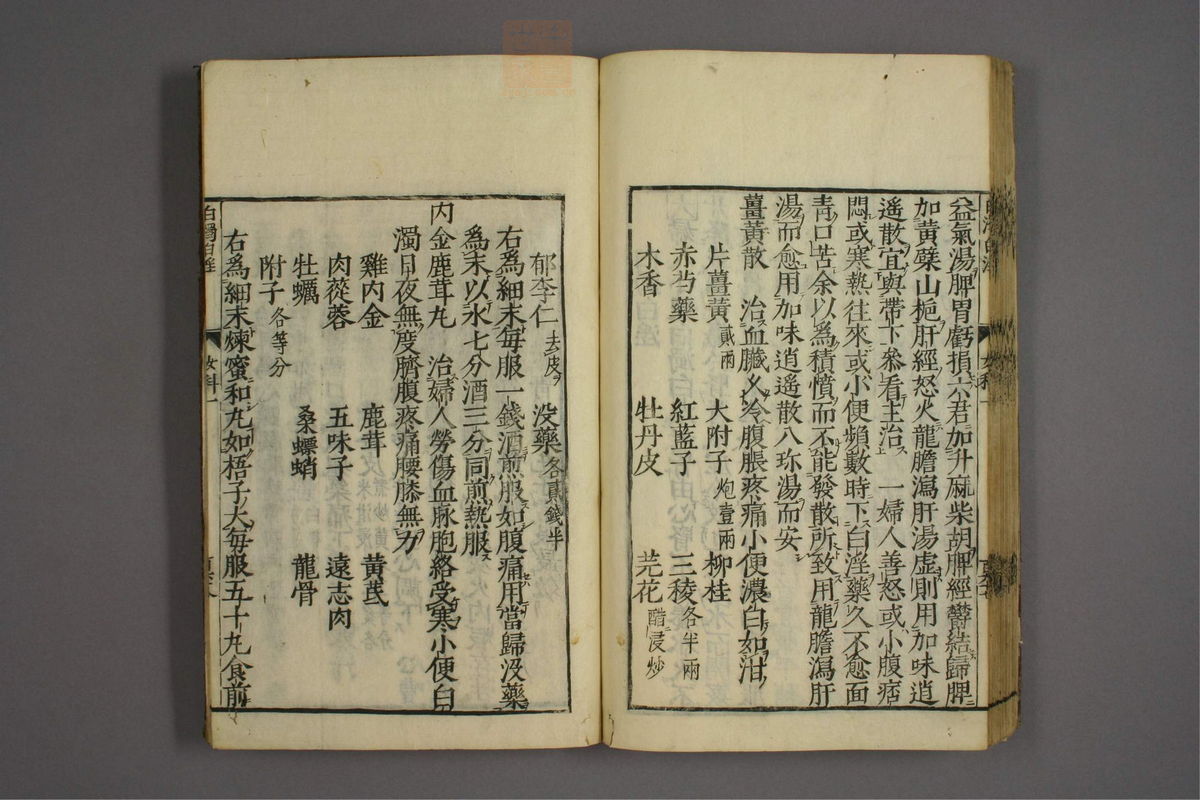 益氣湯脾胃虧損六君加升麻柴胡脾經鬱結歸脾
加黃蘗山梔肝經怒火龍膽瀉肝湯虛則用加味逍
遙散宜與帶下參看主治 一婦人善怒或小腹痞
悶或寒熱往來或小便頻數時下白淫藥久不愈面
青口苦余以爲積憤而不能發散所致用龍膽瀉肝
湯而愈用加味逍遙散八珎湯而安
薑黃散 治血臟久冷腹脹疼痛小便濃白如泔
片薑黃貳兩 大附子炮壹兩 柳桂
赤芍藥 紅藍子 三稜各半兩
木香 牡丹皮 芫花醋浸炒
郁李仁去皮 没藥各貳錢半
右爲細末每服一錢酒煎服如腹痛用當歸没藥
爲末以水七分酒三分同煎熱服
内金鹿茸丸 治婦人勞傷血脉胞絡受寒小便白
濁日夜無度臍腹疼痛腰膝無力
雞内金 鹿茸 黃芪
肉蓯蓉 五味子 遠志肉
牡蠣 桑螵蛸 龍骨
附子各等分
右爲細末煉蜜和丸如梧子大每服五十丸食前
白濁白淫
女科一